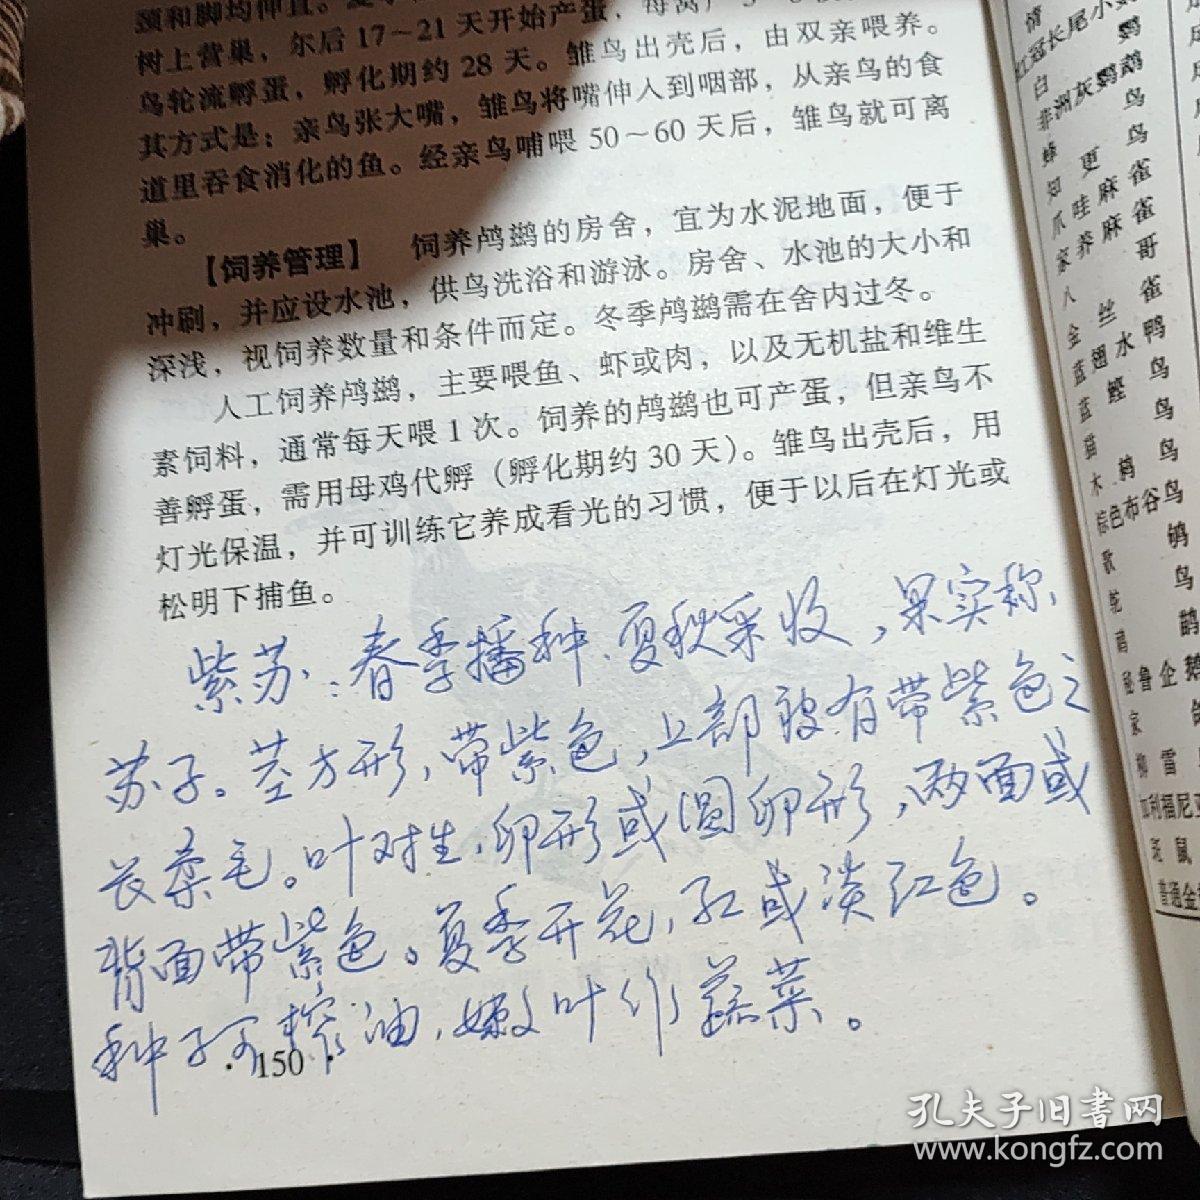 颈和脚均伸直。
树上营巢，尔后17～21天开始产蛋，每窝产
鸟轮流孵蛋，孵化期约28天。雏鸟出壳后，由双亲喂养。
其方式是：亲鸟张大嘴，雏鸟将嘴伸入到咽部，从亲鸟的食
道里吞食消化的鱼。经亲鸟哺喂50～60天后，雏鸟就可离
巢。
【饲养管理】 饲养鸬鹚的房舍，宜为水泥地面，便于
冲刷，并应设水池，供鸟洗浴和游泳。房舍、水池的大小和
深浅，视饲养数量和条件而定。冬季鸬鹚需在舍内过冬。
人工饲养鸬鹚，主要喂鱼、虾或肉，以及无机盐和维生
素饲料，通常每天喂1次。饲养的鸬鹚也可产蛋，但亲鸟不
善孵蛋，需用母鸡代孵（孵化期约30天）。雏鸟出壳后，用
灯光保温，并可训练它养成看光的习惯，便于以后在灯光或
松明下捕鱼。
紫苏：春季播种、夏秋采收，果实称
苏子。茎方形，带紫色，上部被有带紫色之
长柔毛。叶对生，卵形或圆卵形，两面或
背面带紫色。夏季开花，红或淡红色。
种子可榨油，嫩叶作蔬菜。
·150·
红冠长尾小
白 鹦
非洲灰鹦鹉
蜂 鸟
知更鸟
爪哇麻雀
家养麻雀
八哥
金丝雀
蓝翅水鸭
蓝鲣鸟
猫 鸟
木鹤鸟
棕色布谷鸟
歌 鸲
鸵 鸟
秘鲁企鹅
家
柳雷
加利福尼亚
斑鼠
普通金
孔夫子旧书网
www.kongfz.com